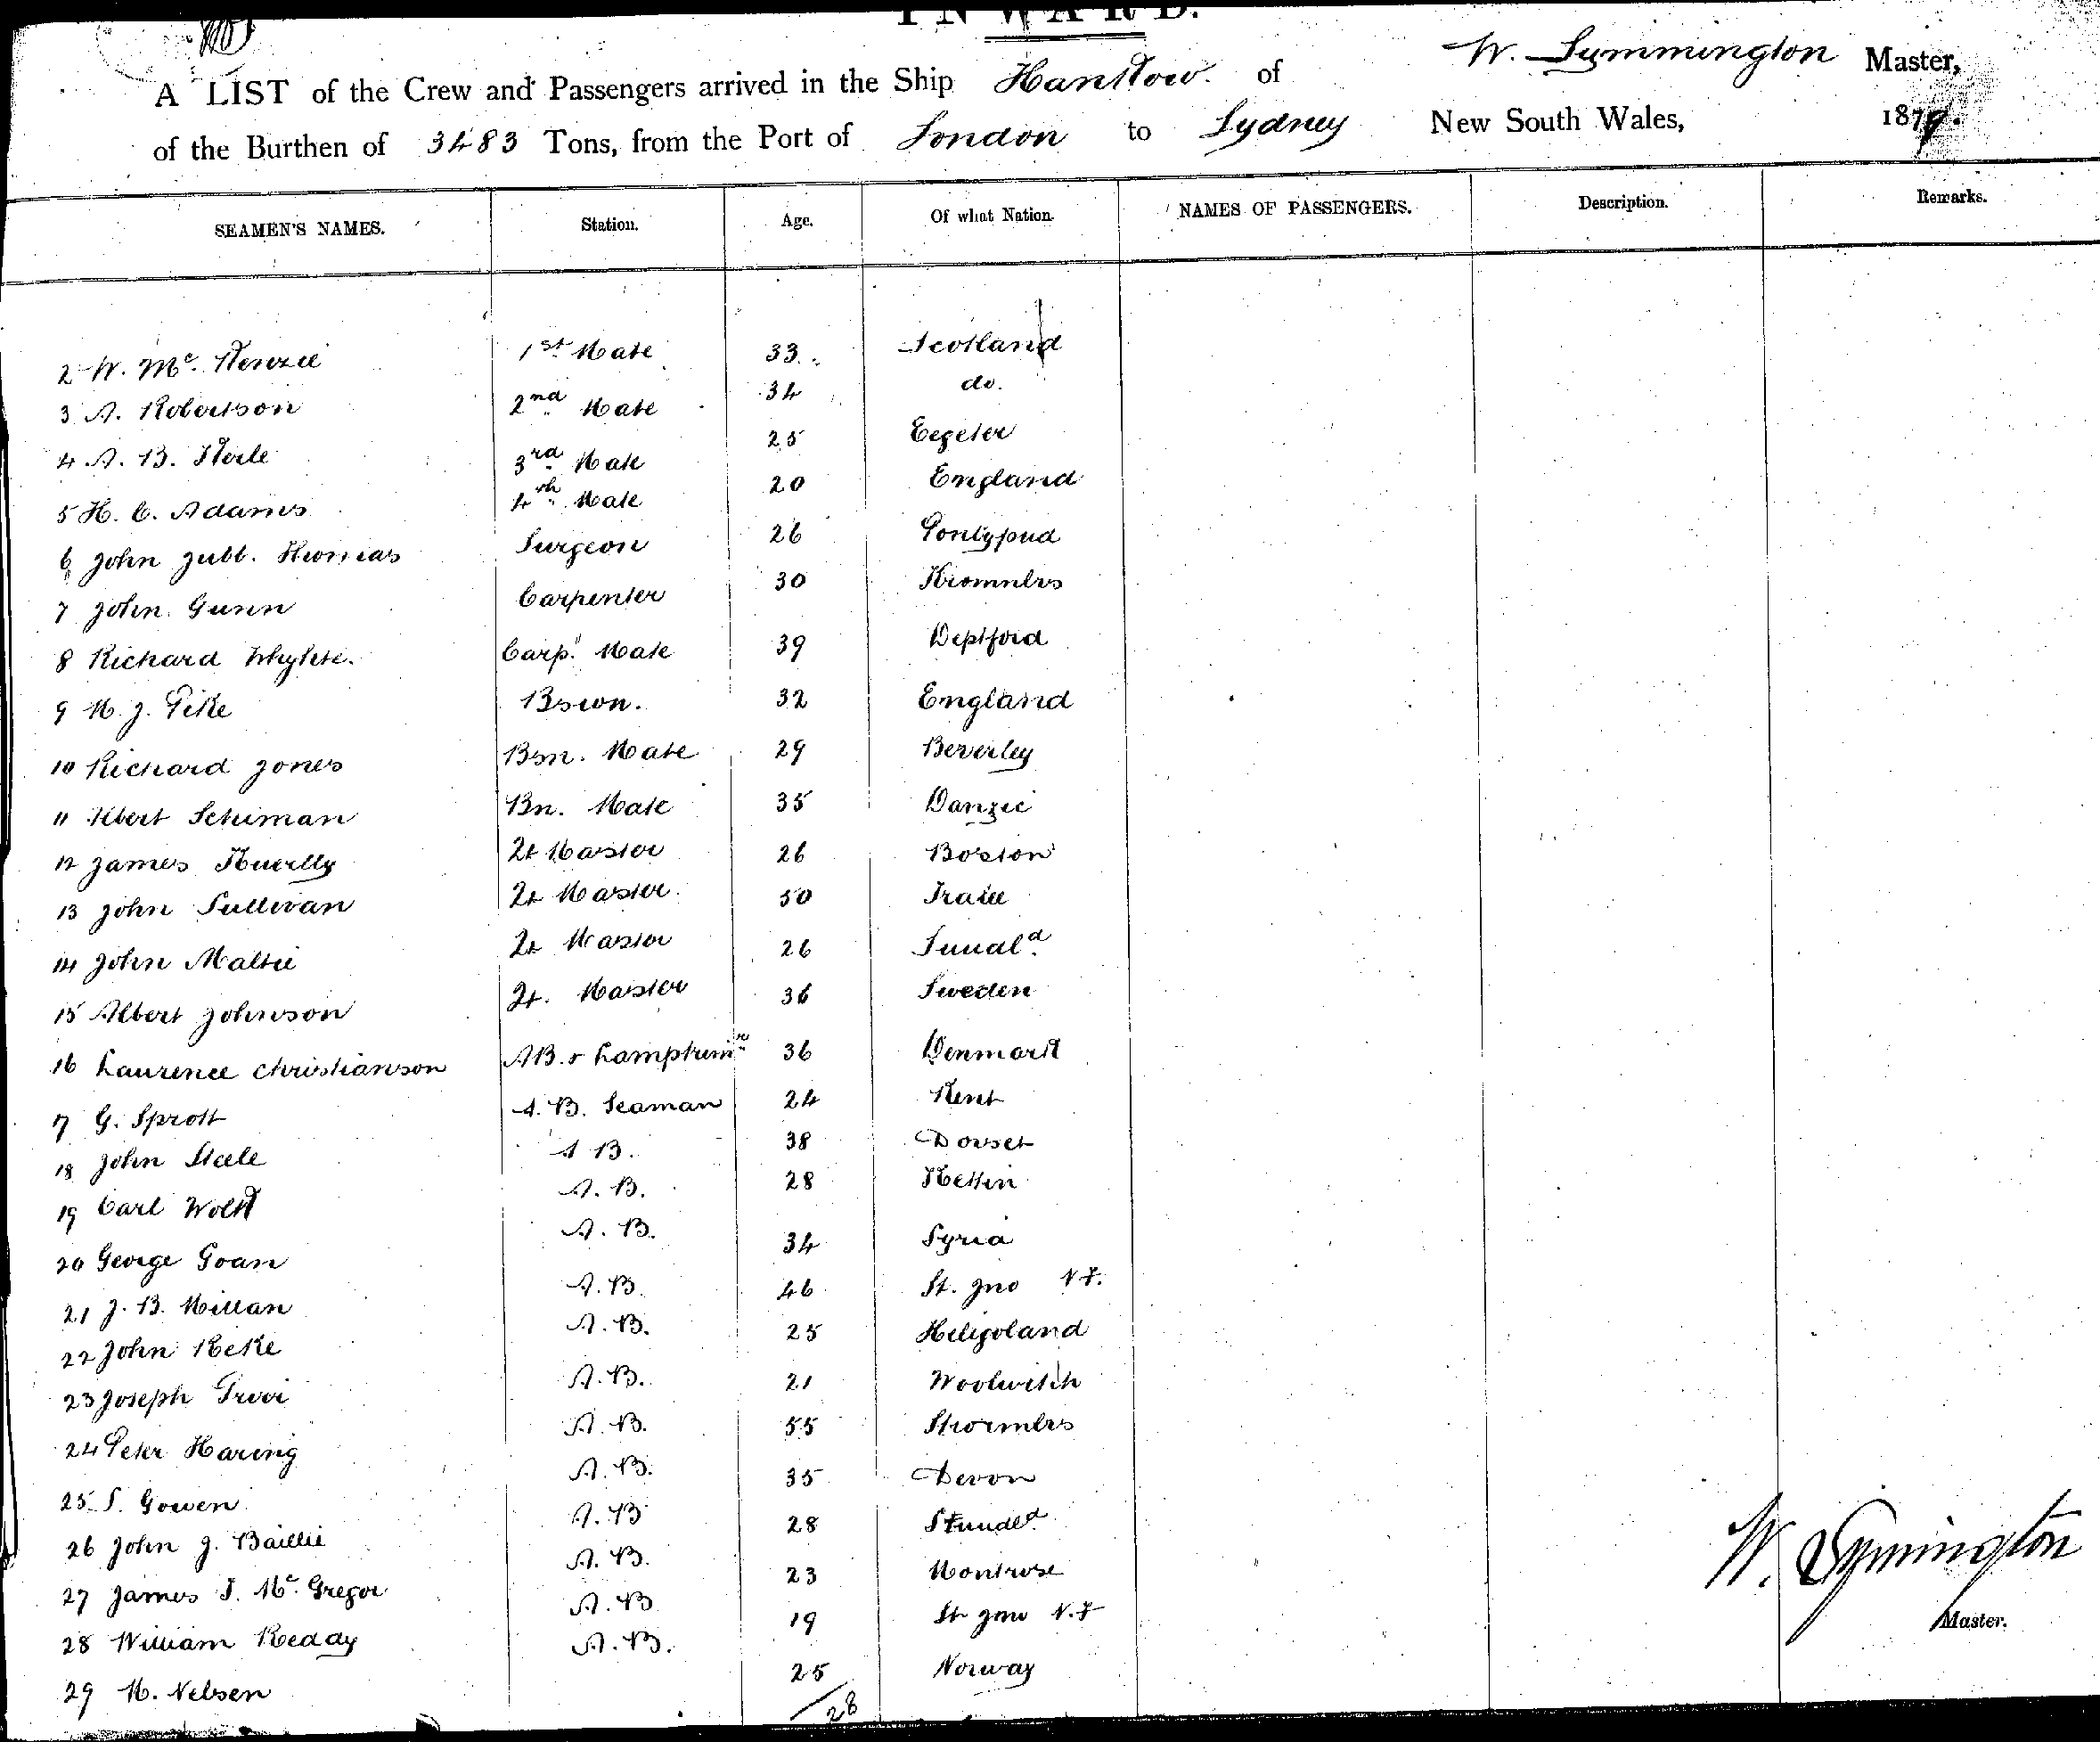 INWARD.
A LIST of the Crew and Passengers arrived in the Ship Hankow. of W. Symmington Master,
of the Burthen of 3483 Tons, from the Port of London to Sydney New South Wales, 1879.
SEAMEN'S NAMES. Station. Age. Of what Nation. NAMES OF PASSENGERS. Description. Remarks.
2 W. Mc. Kenzie 1st Mate 33 Scotland
3 A. Robertson 2nd Mate 34 do.
4 A. B. Steele 3rd Mate 25 Exeter
5 H. C. Adams 4th Mate 20 England
6 John Jubb. Thomas Surgeon 26
7 John Gunn Carpenter 30
8 Richard Whylie. Carp. Mate 39 Deptford
9 M. J. Pike Bswn. 32 England
10 Richard Jones Bsn. Mate 29 Beverley
11 Albert Schiman Bn. Mate 35 Danzic
12 James 2r Master 26 Boston
13 John Sullivan 2r Master. 50
14 John Maltie 2r Master 26 Sundld.
15 Albert Johnson 2r. Master 36 Sweden
16 Laurence Christianson AB. & Lamptrimr 36 Denmark
17 G. Sprott A. B. Seaman 24 Kent
18 John Steele A B. 38 Dorset
19 Carl A. B. 28 Stettin
20 George Goan A. B. 34 Syria
21 J. B. Millan A. B. 46 St. Jno N.F.
22 John A. B. 25 Heligoland
23 Joseph A. B. 21 Woolwich
24 Peter Haring A. B. 55
25 S. Gowen A. B. 35 Devon
26 John J. Baillie A. B 28 Sundld.
27 James J. Mc. Gregor A. B. 23 Montrose
28 William Redday A. B 19 St Jno N.F
29 M. Nelsen A. B. 25 Norway
28
W. Symington
Master.